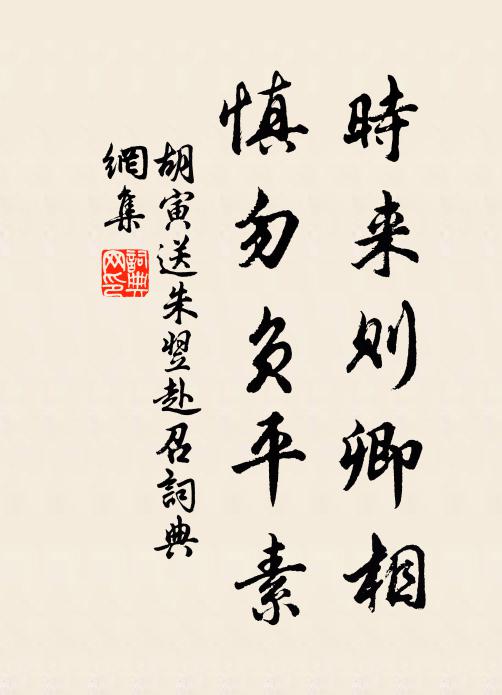 時来则卿相
慎勿负平素
胡寅送朱翌赴召詞典
網集
詞典
网印